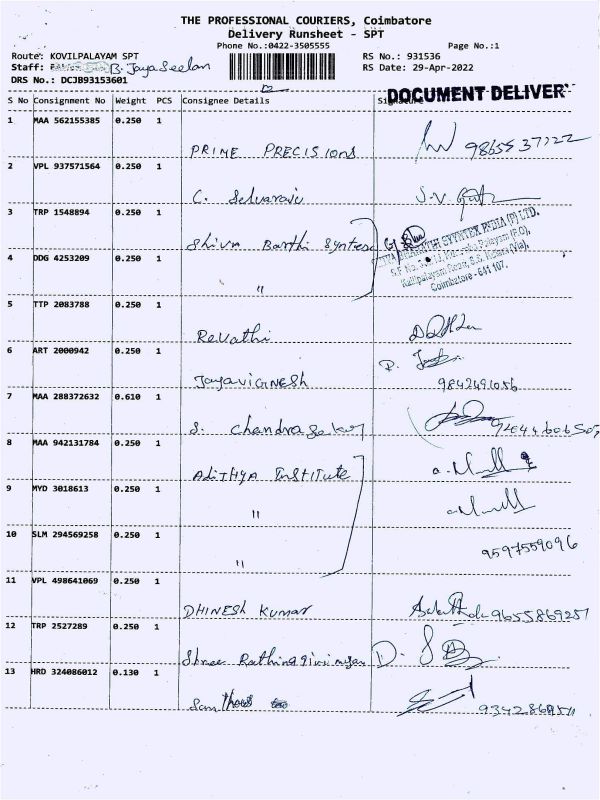 THE PROFESSIONAL COURIERS, Coimbatore
Delivery Runsheet - SPT
Phone No.:0422-3505555 Page No.:1
Route: KOVILPALAYAM SPT RS No.: 931536
Staff: B. Jaya Seelan RS Date: 29-Apr-2022
DRS No.: DCJB93153601
DOCUMENT DELIVER
S No Consignment No Weight PCS Consignee Details
1 MAA 562155385 0.250 1
PRIME PRECISIONS
2 VPL 937571564 0.250 1
C. Selvaraju
3 TRP 1548894 0.250 1
Shiva Barthi Syntex
4 DDG 4253209 0.250 1
"
Coimbatore - 641 107.
5 TTP 2083788 0.250 1
Revathi
6 ART 2000942 0.250 1
JayaviGNESH 9842491056
7 MAA 288372632 0.610 1
S. Chandrasekar
8 MAA 942131784 0.250 1
AdiTHYA InSTITute
9 MYD 3018613 0.250 1
"
10 SLM 294569258 0.250 1
9597559096
"
11 VPL 498641069 0.250 1
DHINESH Kumar 9655869257
12 TRP 2527289 0.250 1
Shree
13 HRD 324086012 0.130 1